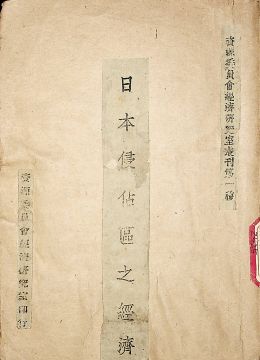 資源委員會經濟研究室叢刊第一種
日本侵佔區之經濟
資源委員會經濟研究室印行